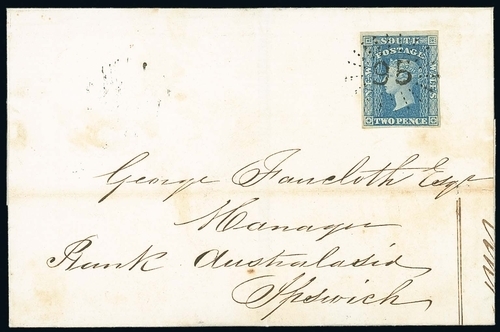 SOUTH
POSTAGE
NEW
WALES
95
TWO PENCE
George Faircloth Esqr
Manager
Bank Australasia
Ipswich